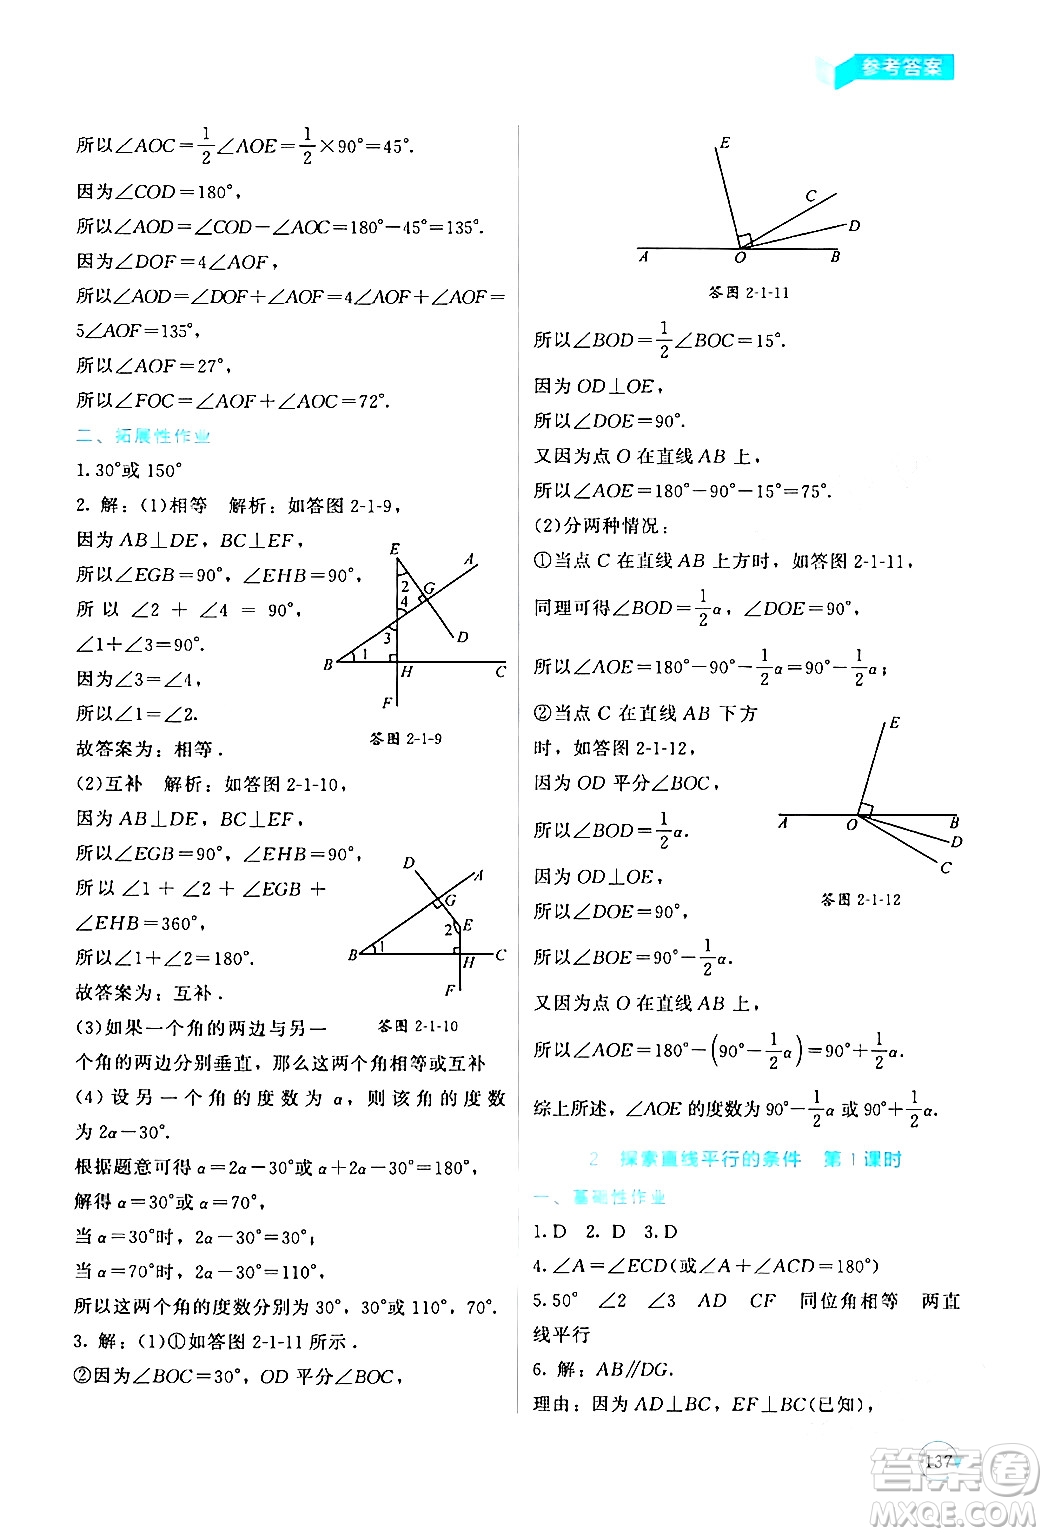 参考答案
所以∠AOC=1/2∠AOE=1/2×90°=45°.
因为∠COD=180°,
所以∠AOD=∠COD-∠AOC=180°-45°=135°.
因为∠DOF=4∠AOF,
所以∠AOD=∠DOF+∠AOF=4∠AOF+∠AOF=
5∠AOF=135°,
所以∠AOF=27°,
所以∠FOC=∠AOF+∠AOC=72°.
二、拓展性作业
1.30°或 150°
2. 解:(1)相等 解析:如答图 2-1-9,
因为 AB⊥DE, BC⊥EF,
所以∠EGB=90°,∠EHB=90°,
所以 ∠2 + ∠4 = 90°,
∠1+∠3=90°.
因为∠3=∠4,
所以∠1=∠2.
故答案为:相等.
E
A
2
G
4
3
D
B
1
H
C
F
答图 2-1-9
(2)互补 解析:如答图 2-1-10,
因为 AB⊥DE, BC⊥EF,
所以∠EGB=90°,∠EHB=90°,
所以 ∠1 + ∠2 + ∠EGB +
∠EHB=360°,
所以∠1+∠2=180°.
故答案为:互补.
D
A
G
2
E
B
1
H
C
F
答图 2-1-10
(3)如果一个角的两边与另一
个角的两边分别垂直,那么这两个角相等或互补
(4)设另一个角的度数为 α,则该角的度数
为 2α-30°.
根据题意可得 α=2α-30°或 α+2α-30°=180°,
解得 α=30°或 α=70°,
当 α=30°时, 2α-30°=30°;
当 α=70°时, 2α-30°=110°,
所以这两个角的度数分别为 30°, 30°或 110°, 70°.
3. 解:(1)①如答图 2-1-11 所示.
②因为∠BOC=30°, OD 平分∠BOC,
E
C
D
A
O
B
答图 2-1-11
所以∠BOD=1/2∠BOC=15°.
因为 OD⊥OE,
所以∠DOE=90°.
又因为点 O 在直线 AB 上,
所以∠AOE=180°-90°-15°=75°.
(2)分两种情况:
①当点 C 在直线 AB 上方时,如答图 2-1-11,
同理可得∠BOD=1/2α,∠DOE=90°,
所以∠AOE=180°-90°-1/2α=90°-1/2α;
②当点 C 在直线 AB 下方
时,如答图 2-1-12,
因为 OD 平分∠BOC,
所以∠BOD=1/2α.
因为 OD⊥OE,
所以∠DOE=90°,
所以∠BOE=90°-1/2α.
E
A
O
B
D
C
答图 2-1-12
又因为点 O 在直线 AB 上,
所以∠AOE=180°-(90°-1/2α)=90°+1/2α.
综上所述,∠AOE 的度数为 90°-1/2α 或 90°+1/2α.
2 探索直线平行的条件 第 1 课时
一、基础性作业
1.D 2. D 3.D
4.∠A=∠ECD(或∠A+∠ACD=180°)
5.50° ∠2 ∠3 AD CF 同位角相等 两直
线平行
6. 解:AB∥DG.
理由:因为 AD⊥BC, EF⊥BC(已知),
137
答案圈
MXQE.COM